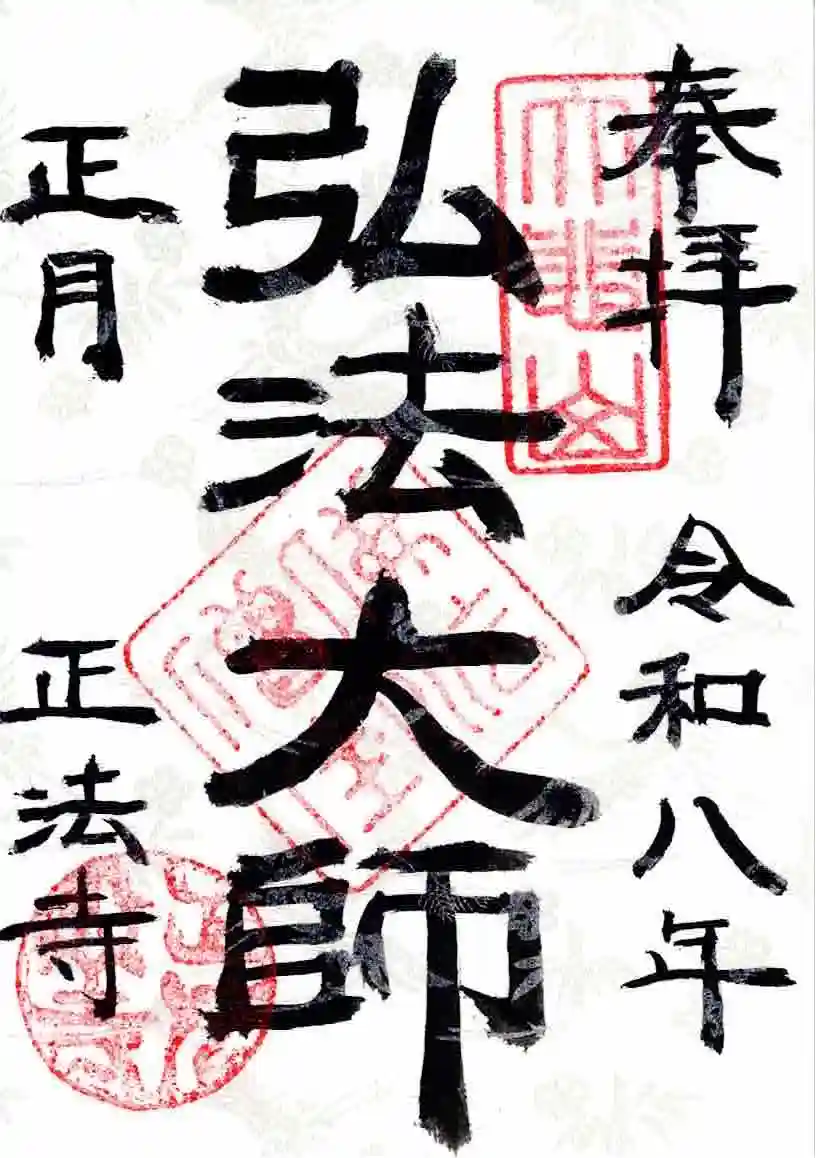 奉拝
令和八年
大悲山
弘法大師
正月
正法寺